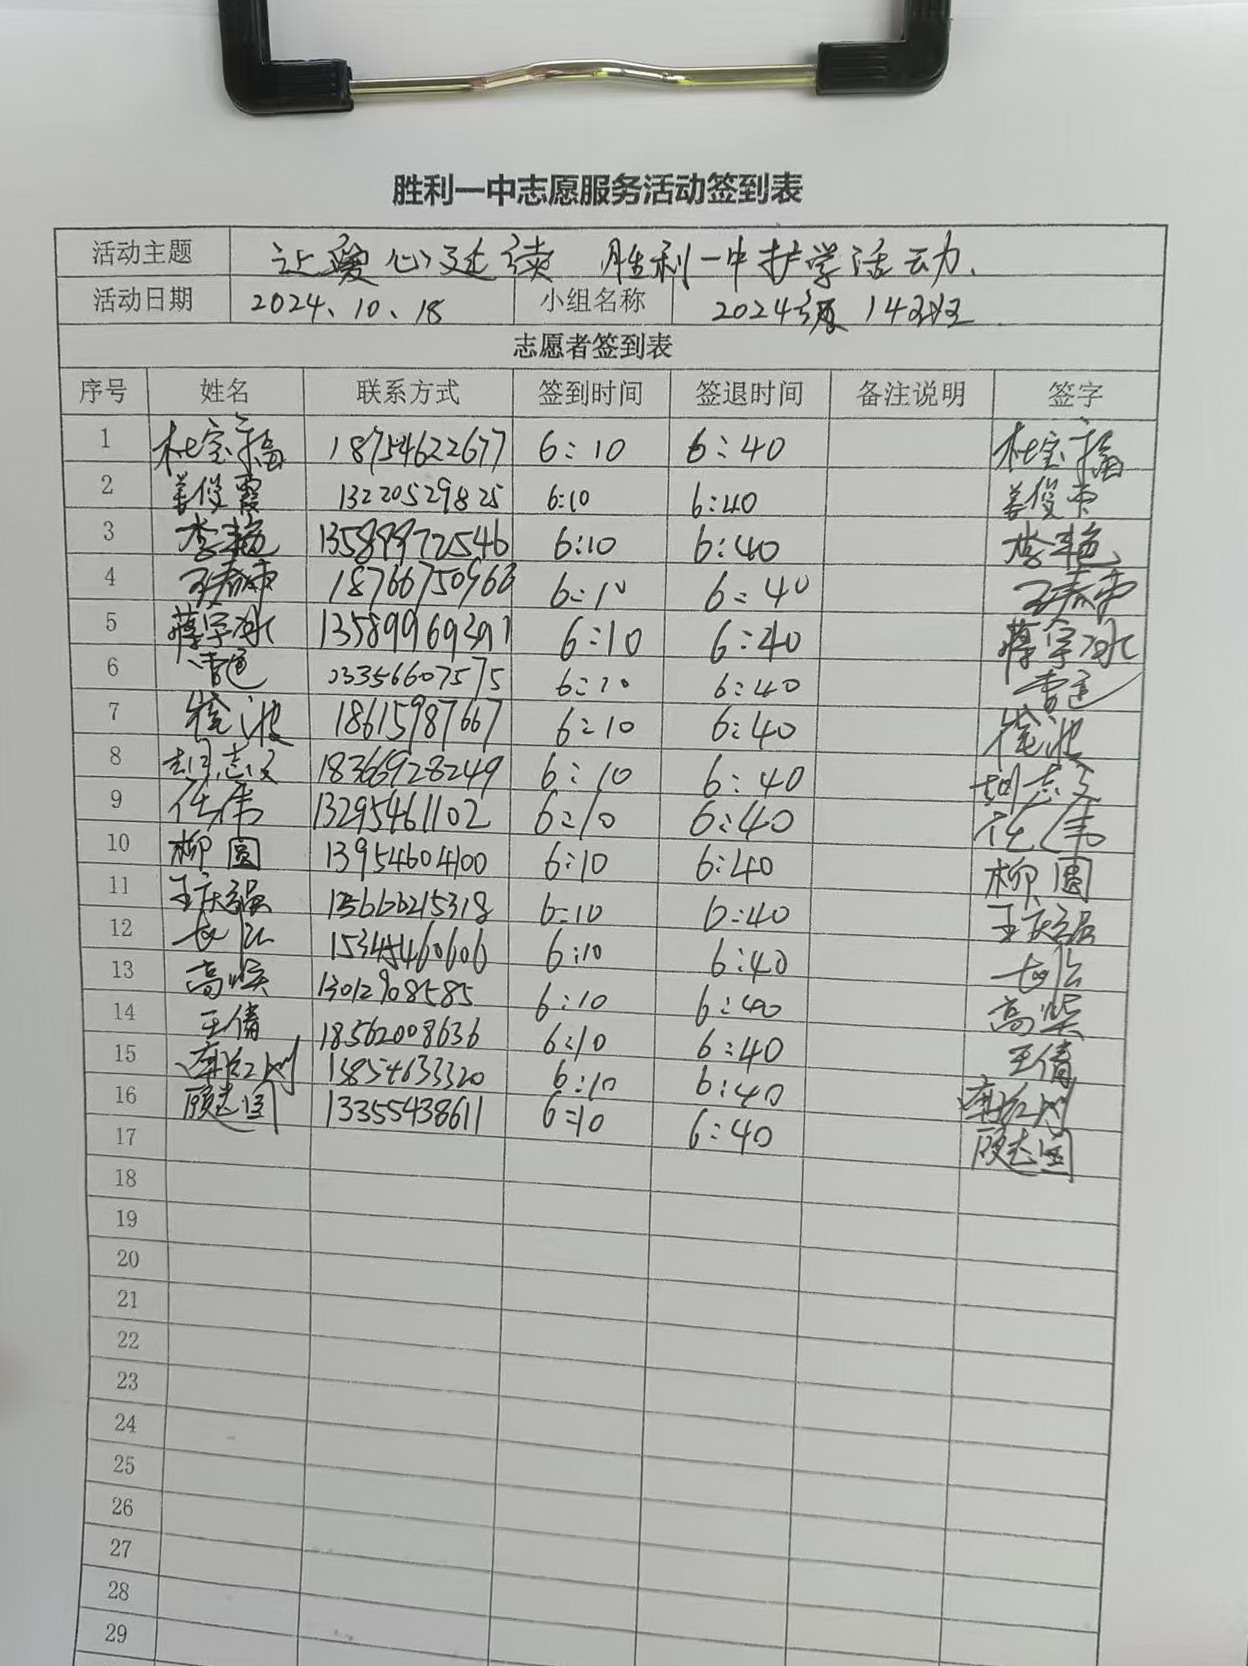 胜利一中志愿服务活动签到表
活动主题 让爱心延续 胜利一中护学活动.
活动日期 2024、10、18 小组名称 2024级14班
志愿者签到表
序号 姓名 联系方式 签到时间 签退时间 备注说明 签字
1 杜宝 18754622677 6:10 6:40 杜宝
2 姜俊霞 13220529825 6:10 6:40 姜俊霞
3 李艳 13589972546 6:10 6:40 李艳
4 6:10 6:40
5 蒋宇冰 13589969391 6:10 6:40 蒋宇冰
6 6:10 6:40
7 徐波 18615987667 6:10 6:40 徐波
8 胡志文 18366928249 6:10 6:40 胡志文
9 任伟 13295461102 6:10 6:40 任伟
10 柳圆 13954604100 6:10 6:40 柳圆
11 王庆强 6:10 6:40 王庆强
12 15345460606 6:10 6:40
13 高 13012908585 6:10 6:40 高
14 王倩 18562008636 6:10 6:40 王倩
15 13854633320 6:10 6:40
16 顾志国 13355438611 6:10 6:40 顾志国
17
18
19
20
21
22
23
24
25
26
27
28
29